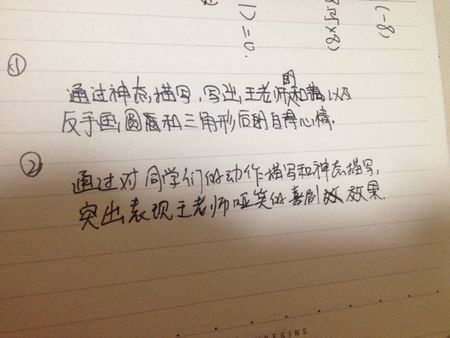 (-8)
8x5x8)
1)=0.
①
通过神态描写,写出王老师的和蔼以及
反手画圆和三角形后的自得心情.
②
通过对同学们的动作描写和神态描写,
突出表现王老师哑笑的喜剧效果.
BEGINS